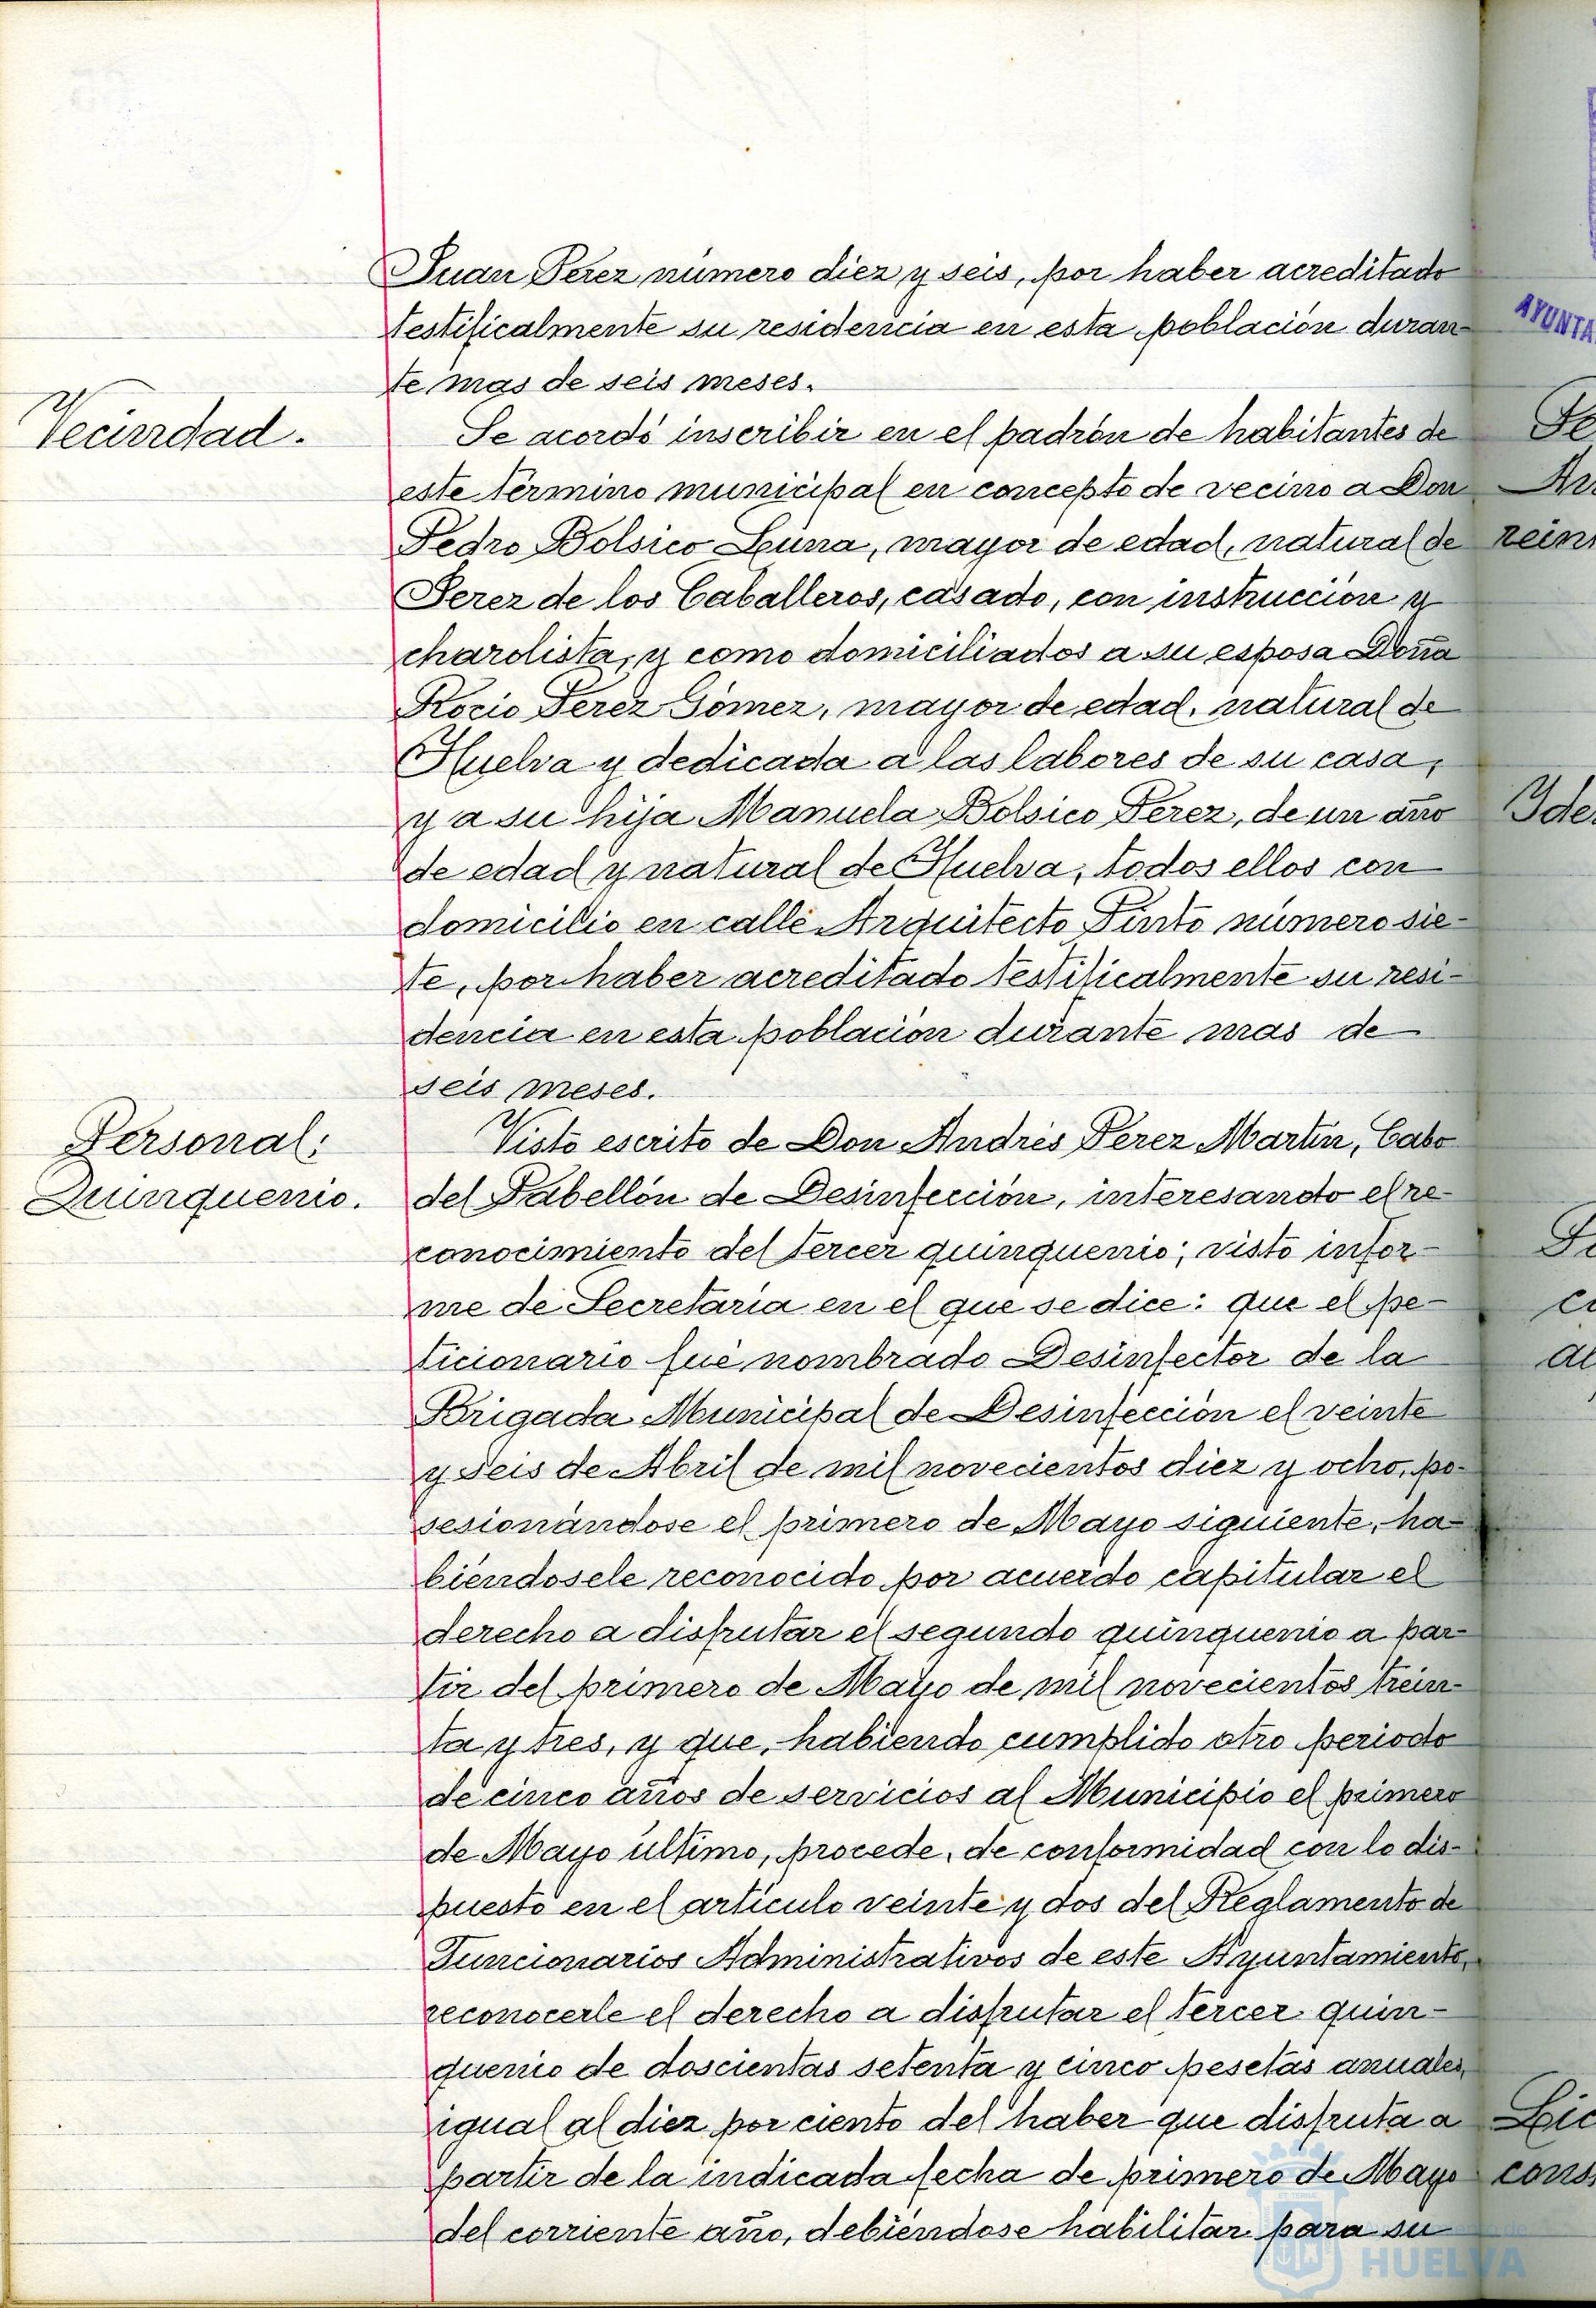 Juan Perez número diez y seis, por haber acreditado
testificalmente su residencia en esta población duran-
te mas de seis meses.
Vecindad.
Se acordó inscribir en el padrón de habitantes de
este término municipal en concepto de vecino a Don
Pedro Bolsico Luna, mayor de edad, natural de
Jerez de los Caballeros, casado, con instrucción y
charolista, y como domiciliados a su esposa Doña
Rocio Perez Gómez, mayor de edad, natural de
Huelva y dedicada a las labores de su casa,
y a su hija Manuela Bolsico Perez, de un año
de edad y natural de Huelva, todos ellos con
domicilio en calle Arquitecto Pinto número sie-
te, por haber acreditado testificalmente su resi-
dencia en esta población durante mas de
seis meses.
Personal:
Quinquenio.
Visto escrito de Don Andrés Perez Martin, Cabo
del Pabellón de Desinfección, interesando el re-
conocimiento del tercer quinquenio; visto infor-
me de Secretaria en el que se dice: que el pe-
ticionario fué nombrado Desinfector de la
Brigada Municipal de Desinfección el veinte
y seis de Abril de mil novecientos diez y ocho, po-
sesionándose el primero de Mayo siguiente, ha-
biéndosele reconocido por acuerdo capitular el
derecho a disfrutar el segundo quinquenio a par-
tir del primero de Mayo de mil novecientos trein-
ta y tres, y que, habiendo cumplido otro periodo
de cinco años de servicios al Municipio el primero
de Mayo último, procede, de conformidad con lo dis-
puesto en el artículo veinte y dos del Reglamento de
Funcionarios Administrativos de este Ayuntamiento,
reconocerle el derecho a disfrutar el tercer quin-
quenio de doscientas setenta y cinco pesetas anuales,
igual al diez por ciento del haber que disfruta a
partir de la indicada fecha de primero de Mayo
del corriente año, debiéndose habilitar para su
AYUNTA
HUELVA